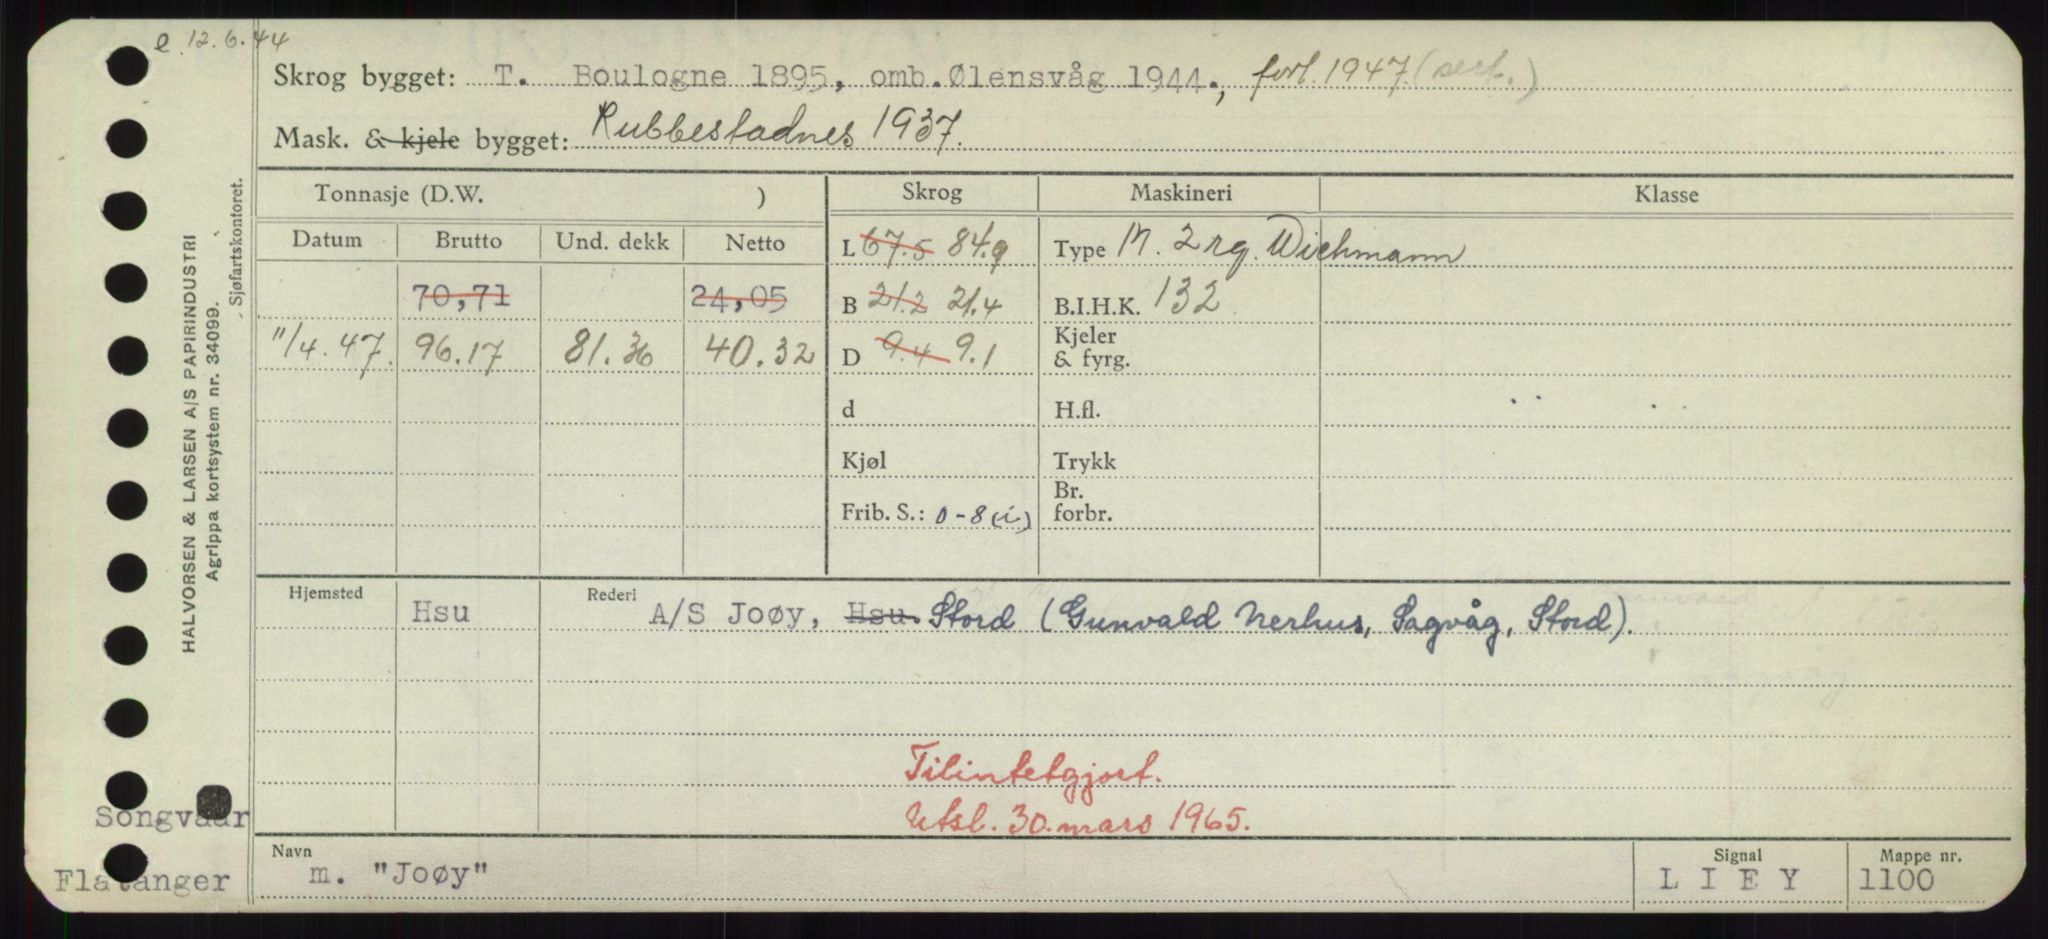 e 12.6.44
Skrog bygget: T. Boulogne 1895, omb. Ølensvåg 1944., forl. 1947 (sert.)
Mask. & kjele bygget: Rubbestadnes 1937.
Tonnasje (D.W. ) Skrog Maskineri Klasse
Datum Brutto Und. dekk Netto L 67.5 84.9 Type M. 2 rg. Wichmann
70,71 24,05 B 21.2 21.4 B.I.H.K. 132
11/4.47. 96.17 81.36 40.32 D 9.4 9.1 Kjeler
& fyrg.
d H.fl.
Kjøl Trykk
Br.
Frib. S.: 0-8 (i) forbr.
Hjemsted Hsu Rederi A/S Joøy, Hsu. Stord (Gunvald Nerhus, Sagvåg, Stord).
Tilintetgjort.
Utsl. 30. mars 1965.
Navn Signal Mappe nr.
m. "Joøy" L I E Y 1100
Songvaar
Flatanger
HALVORSEN & LARSEN A/S PAPIRINDUSTRI
Agrippa kortsystem nr. 34099.
Sjøfartskontoret.